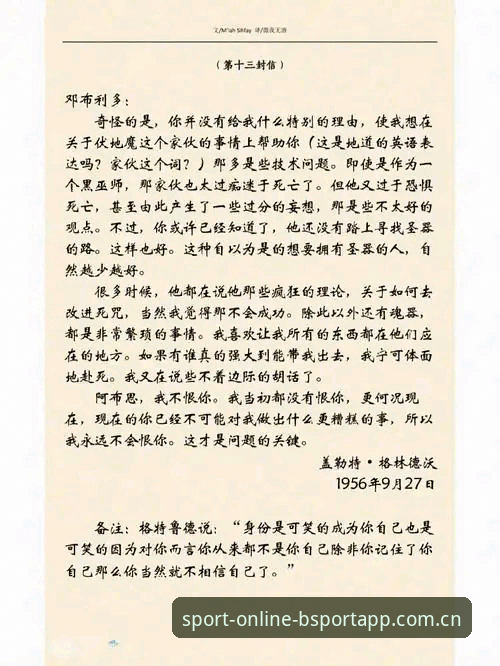 文/M'iah Sihfay 译/微我无酒
（第十三封信）
邓布利多：
奇怪的是，你并没有给我什么特别的理由，使我想在
关于伏地魔这个家伙的事情上帮助你（这是地道的英语表
达吗？家伙这个词？）那多是些技术问题。即使是作为一
个黑巫师，那家伙也太过痴迷于死亡了。但他又过于恐惧
死亡，甚至由此产生了一些过分的妄想，那是些不太好的
观点。不过，你或许已经知道了，他还没有踏上寻找圣器
的路。这样也好。这种自以为是的想要拥有圣器的人，自
然越少越好。
很多时候，他都在说他那些疯狂的理论，关于如何去
改进死咒，当然我觉得那不会成功。除此以外还有魂器，
都是非常繁琐的事情。我喜欢让我所有的东西都在他们应
在的地方。如果有谁真的强大到能带我出去，我宁可体面
地赴死。我又在说些不着边际的胡话了。
阿布思，我不恨你。我当初都没有恨你，更何况现
在，现在的你已经不可能对我做出什么更糟糕的事，所以
我永远不会恨你。这才是问题的关键。
盖勒特·格林德沃
1956年9月27日
备注：格特鲁德说：“身份是可笑的成为你自己也是
可笑的因为对你而言你从来都不是你自己除非你记住了你
自己那么你当然就不相信自己了。”
sport-online-bsportapp.com.cn